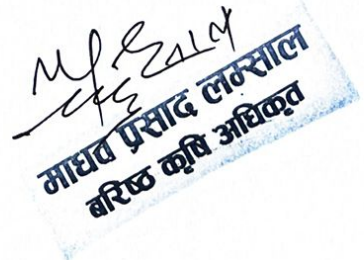 माघव प्रसाद लम्साल
बरिष्ठ कृषि अधिकृत